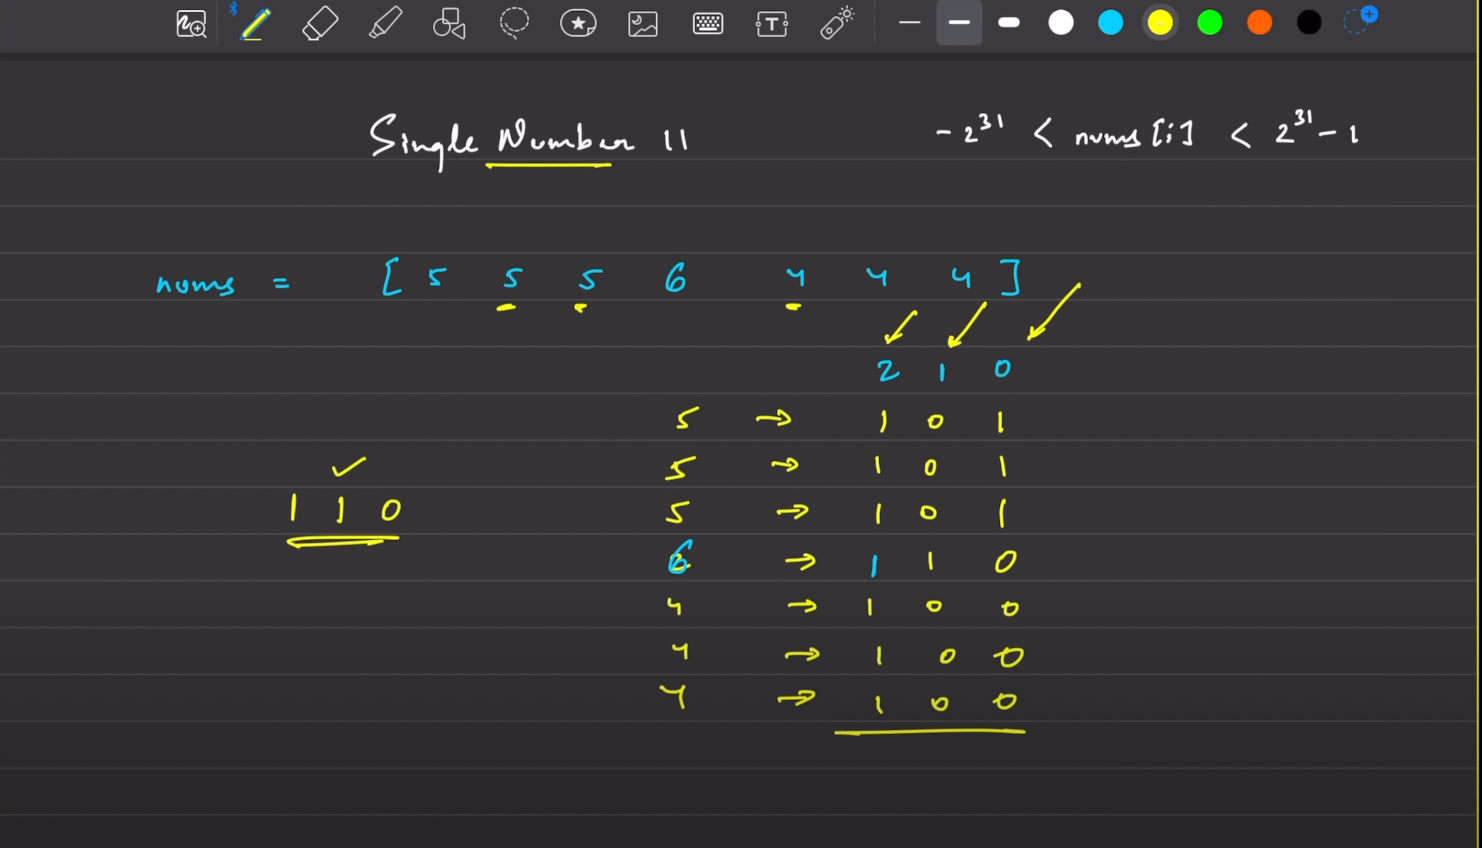 Single Number II
-2^31 < nums[i] < 2^31 - 1
nums = [ 5 5 5 6 4 4 4 ]
2 1 0
5 → 1 0 1
5 → 1 0 1
1 1 0
5 → 1 0 1
6 → 1 1 0
4 → 1 0 0
4 → 1 0 0
4 → 1 0 0